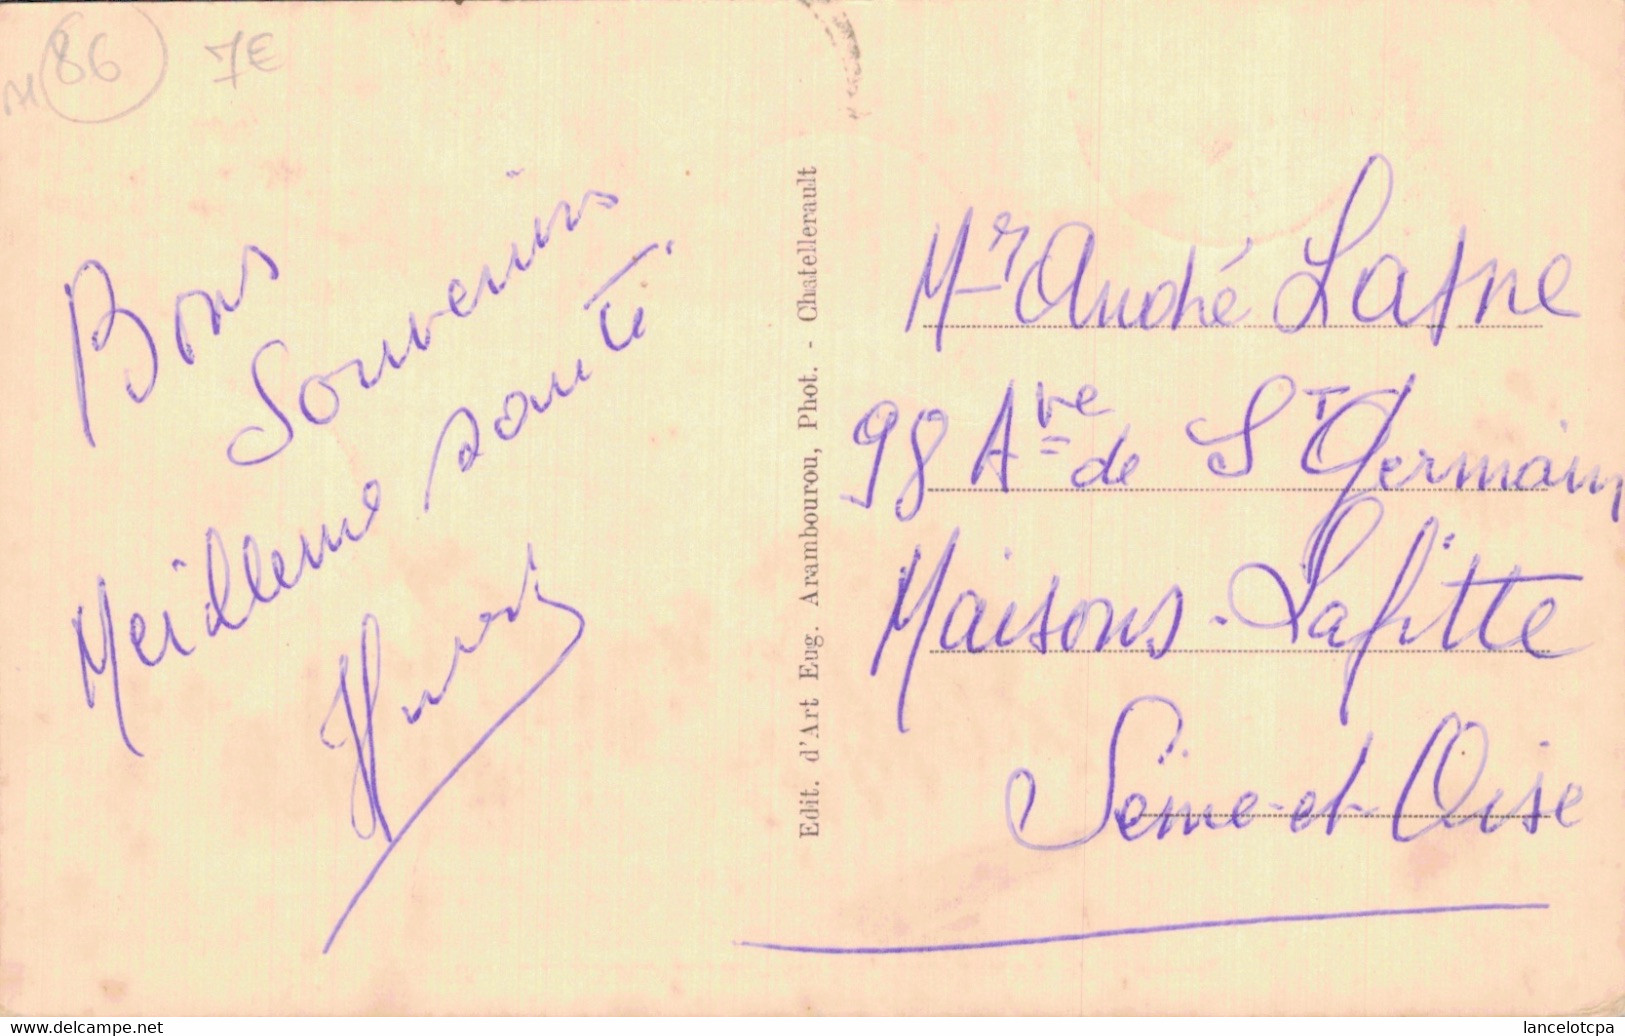 86 7€
Bons
Souvenirs
Meilleure santé.
Edit. d'Art Eug. Arambourou, Phot. - Chatellerault
Mr André Lasne
98 Ave de St Germain
Maisons-Lafitte
Seine-et-Oise
www.delcampe.net
lancelotcpa